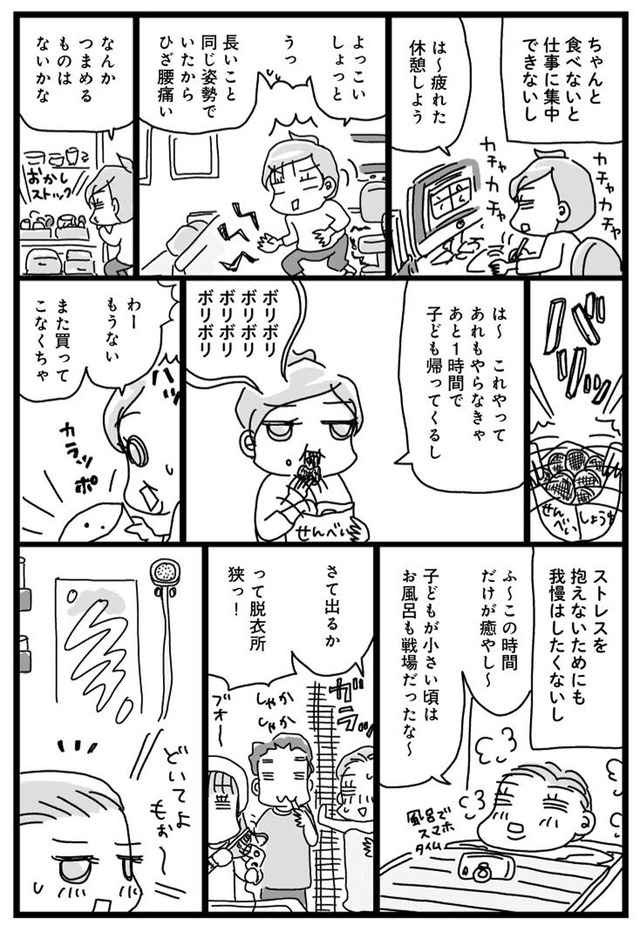 ちゃんと
食べないと
仕事に集中
できないし
は〜疲れた
休憩しよう
カチャカチャ
カチャカチャ
よっこい
しょっと
うっ
長いこと
同じ姿勢で
いたから
ひざ腰痛い
なんか
つまめる
ものは
ないかな
おかし
ストック
バリッ
せんべい
しょうゆ
は〜 これやって
あれもやらなきゃ
あと1時間で
子ども帰ってくるし
ボリボリ
ボリボリ
ボリボリ
ボリボリ
せんべい
わー
もうない
また買って
こなくちゃ
カラッポ
ストレスを
抱えないためにも
我慢はしたくないし
ふ〜この時間
だけが癒やし〜
子どもが小さい頃は
お風呂も戦場だったな〜
風呂で
スマホ
タイム
さて出るか
って脱衣所
狭っ!
ガラッ
しゃか
しゃか
ブオー
どいてよ
もぉ〜